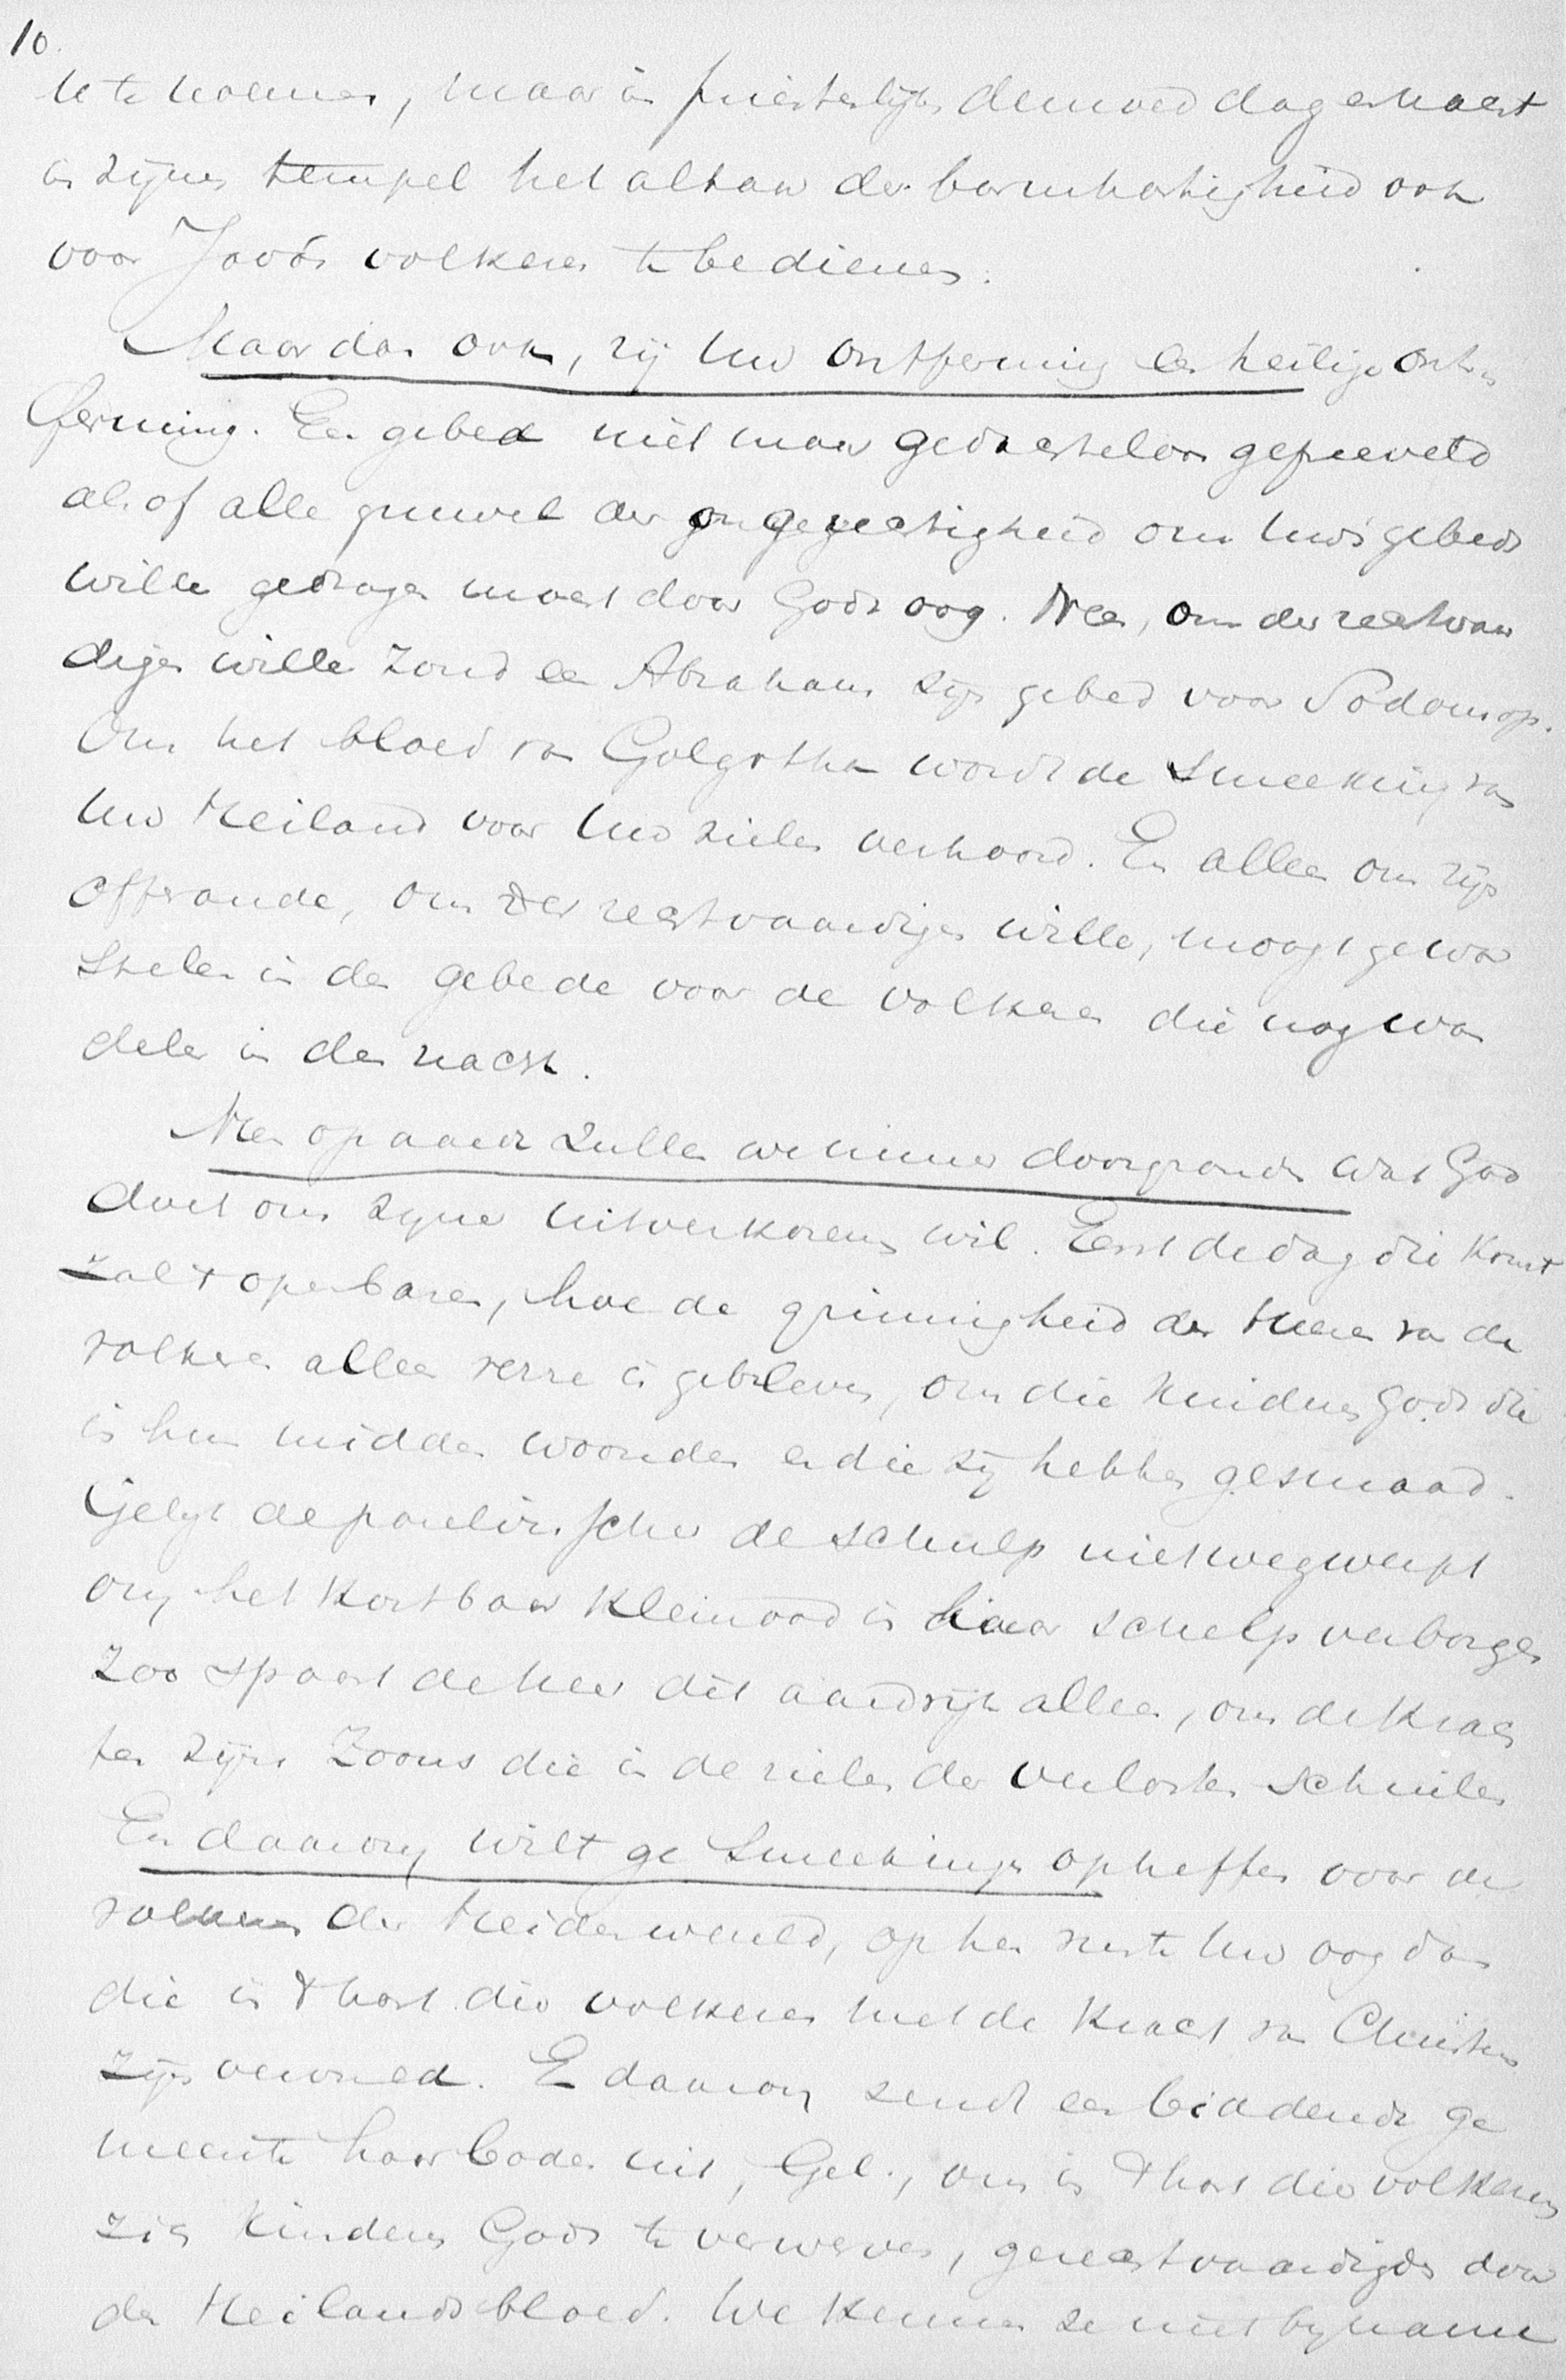 10.
U te noemen, maar in priesterlijke demoed dag en nacht
in zijnen tempel het altaar der barmhartigheid ook
voor Java's volkeren te bedienen.
Maar dan ook, zij uw ontferming een heilige ont-
ferming. Een gebed niet maar gedachteloos gepreveld
alsof alle gruwel der ongerechtigheid om uws gebeds
wille gedragen moest door Gods oog. Neen, om der rechtvaar
digen wille zond een Abraham zijn gebed voor Sodom op.
Om het bloed van Golgotha wordt de smeeking van
Uw Heiland voor Uw zielen verhoord. En alleen om zijn
offerande, om des rechtvaardigen wille, moogt ge wor
stelen in den gebede voor de volkeren die nog wan
delen in den nacht.
Neen op aarde zullen we nimmer doorgronden wat God
doet om zyner uitverkorenen wil. Eerst de dag die komt
zal 't openbaren, hoe de grimmigheid des Heeren van de
volkeren alleen verre is gebleven, om die kinderen Gods die
in hun midden woonden en die zij hebben gesmaad.
Gelijk de parelvisscher de schulp niet wegwerpt
om het kostbaar kleinood in haar schelp verborgen
zoo spaart de Heer dit aardrijk alleen, om de krach
ten zijns Zoons die in de zielen der verlosten schuilen
En daarom wilt ge smeekingen opheffen voor de
volkeren der Heidenwereld, op hen ruste Uw oog dan
die in 't hart dier volkeren met de kracht van Christus
zijn vervuld. En daarom zendt een biddende ge
meente haar boden uit, Gel., om in 't hart dier volkeren
zich kinderen Gods te verwerven, gerechtvaardigds door
des Heilands bloed. We kennen ze niet by name